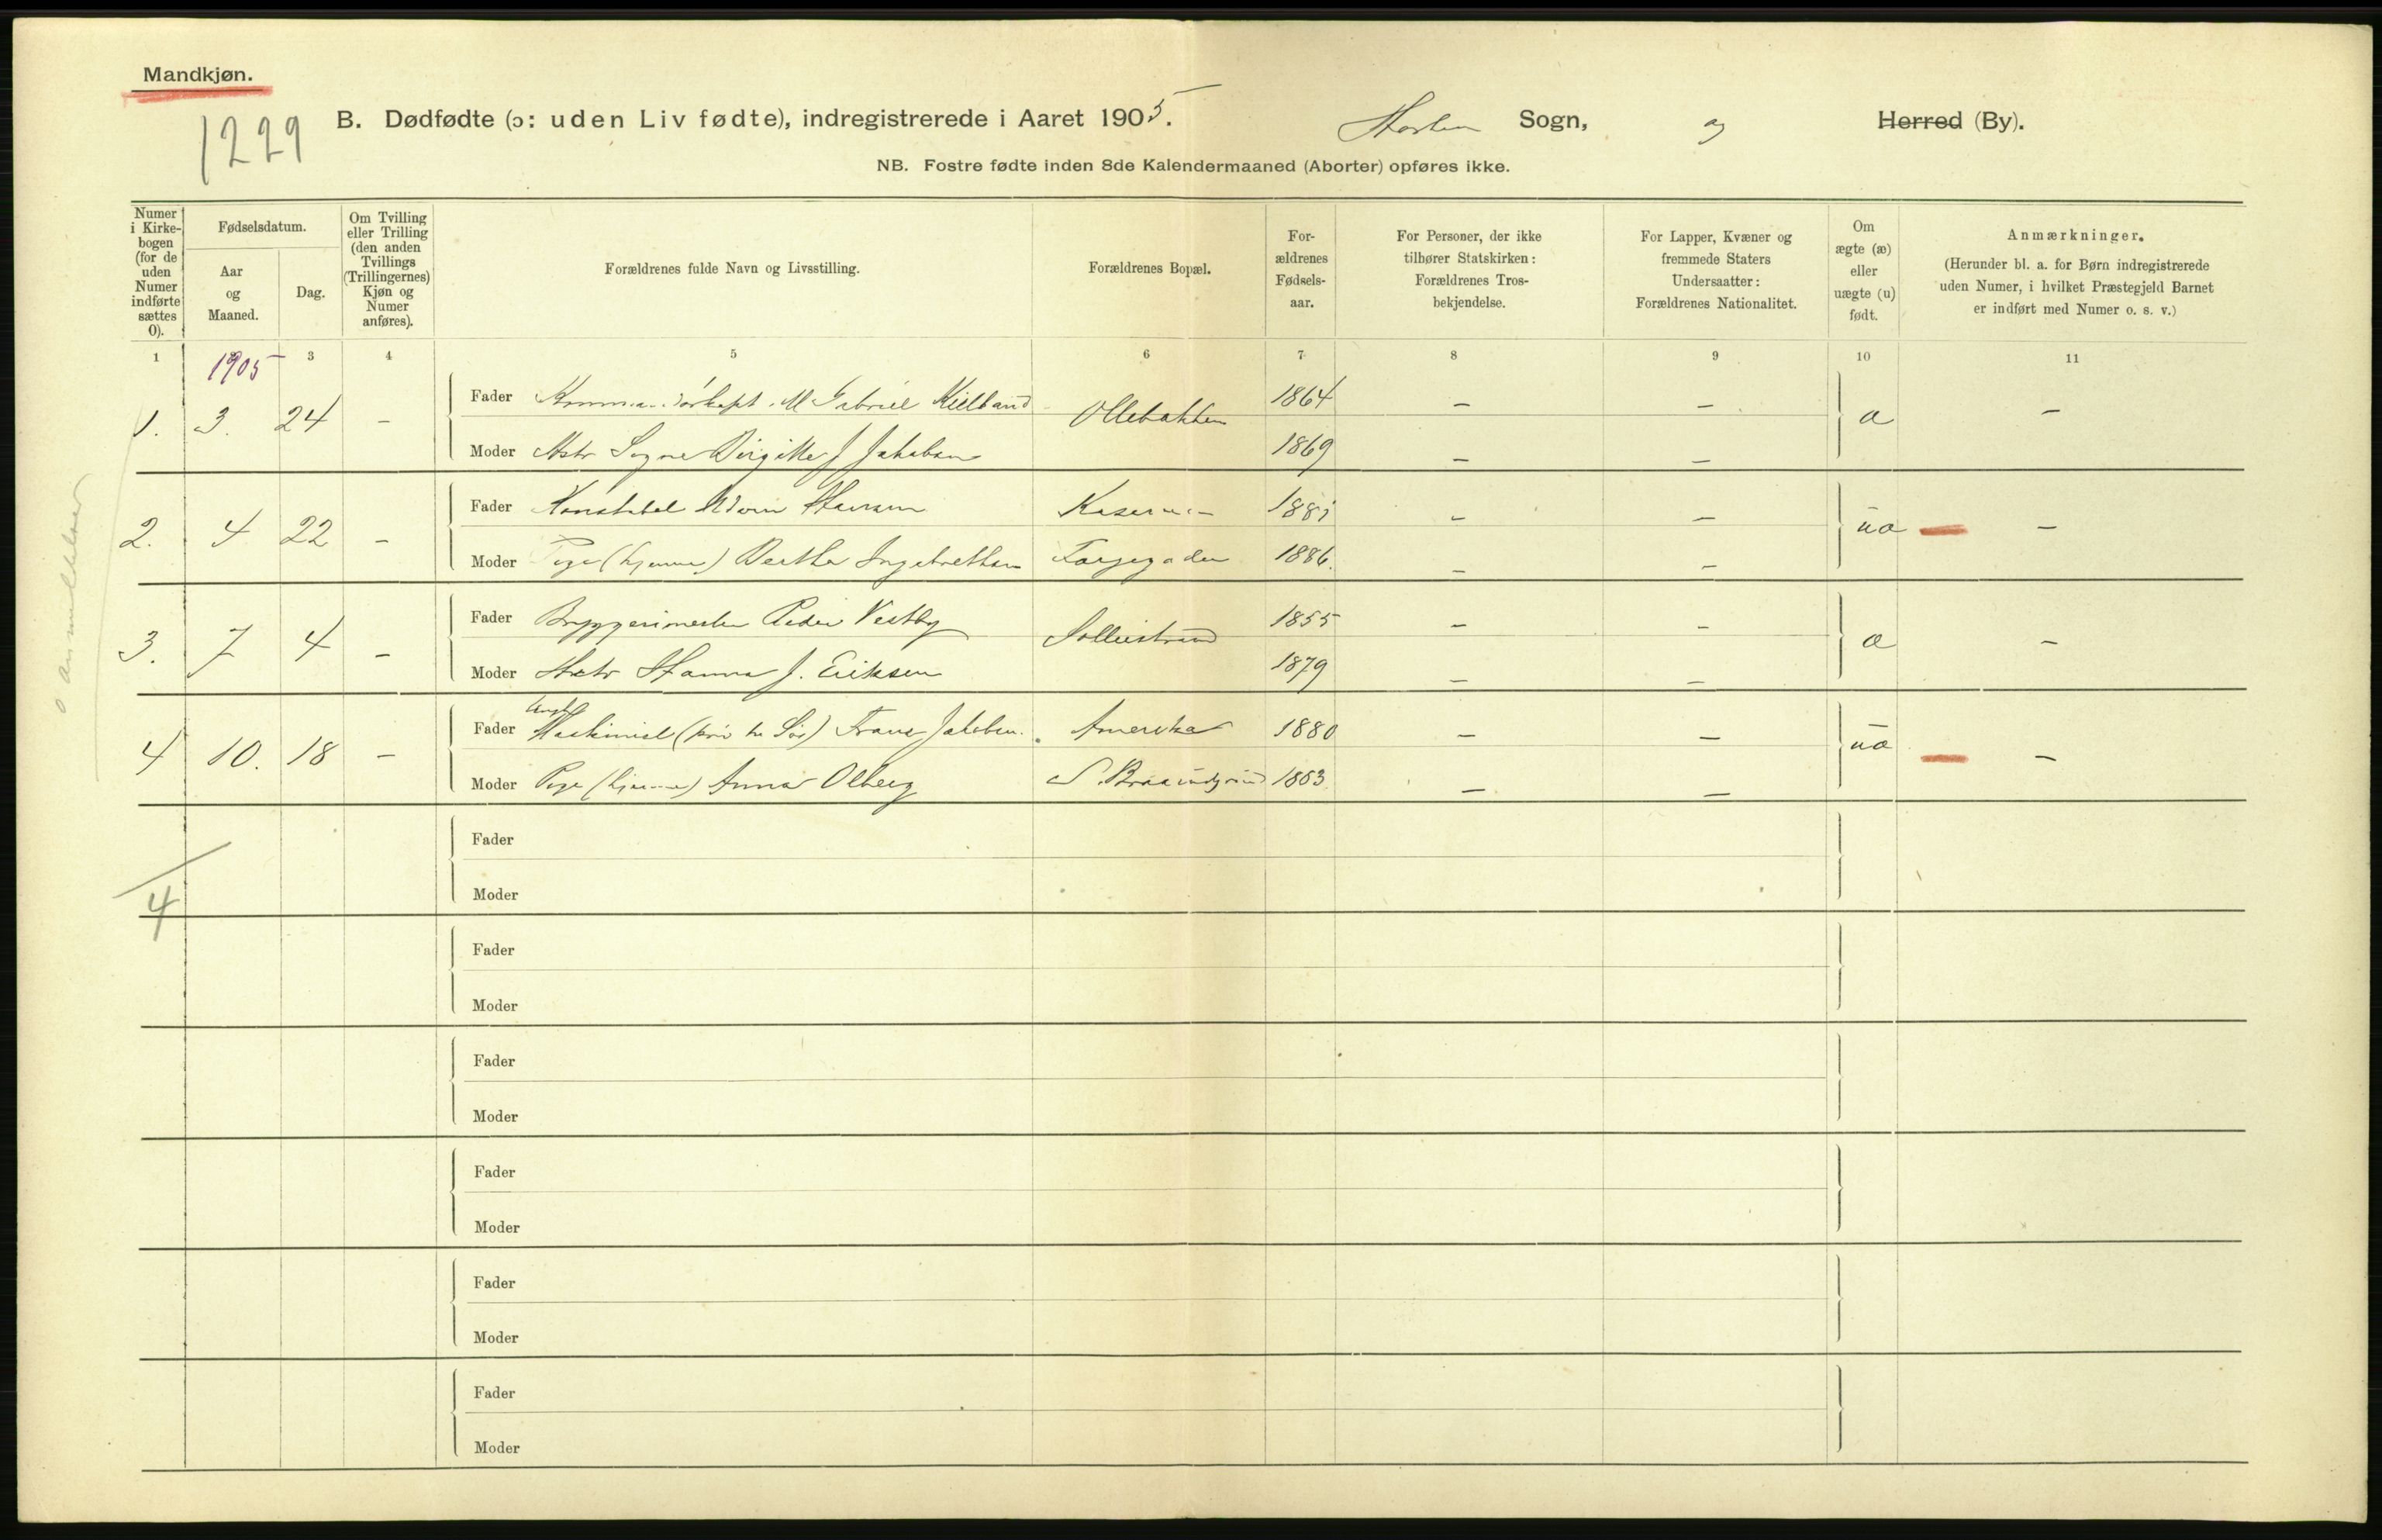 Mandkjøn.
1229
B. Dødfødte (ɔ: uden Liv fødte), indregistrerede i Aaret 1905. Horten Sogn, og Herred (By).
NB. Fostre fødte inden 8de Kalendermaaned (Aborter) opføres ikke.
Numer i Kirkebogen (for de uden Numer indførte sættes 0).
Fødselsdatum.
Aar og Maaned.
Dag.
Om Tvilling eller Trilling (den anden Tvillings (Trillingernes) Kjøn og Numer anføres).
Forældrenes fulde Navn og Livsstilling.
Forældrenes Bopæl.
For-ældrenes Fødsels-aar.
For Personer, der ikke tilhører Statskirken: Forældrenes Tros-bekjendelse.
For Lapper, Kvæner og fremmede Staters Undersaatter: Forældrenes Nationalitet.
Om ægte (æ) eller uægte (u) født.
Anmærkninger.
(Herunder bl. a. for Børn indregistrerede uden Numer, i hvilket Præstegjeld Barnet er indført med Numer o. s. v.)
1 1905 3 4 5 6 7 8 9 10 11
1. 3. 24 -
Fader M Gabriel Kielland Ollebakken 1864 - - æ -
Moder Hstr Signe Birgitte J Jakobsen 1869 - -
2. 4 22 -
Fader Konstabel Hansen 1881 - - uæ -
Moder Pige (hjemme) Berthe Ingebrethsen Torvegaden 1886. - -
3. 7 4 -
Fader Bryggerimester Peder Vestby 1855 - - æ -
Moder Hstr Hanna J. Eriksen 1879 - -
4 10. 18 -
Fader Maskinist Frans Jakobsen. Amerika 1880 - - uæ -
Moder Pige (hjemme) Anna Olberg 1883 - -
4
Fader
Moder
Fader
Moder
Fader
Moder
Fader
Moder
Fader
Moder
Fader
Moder